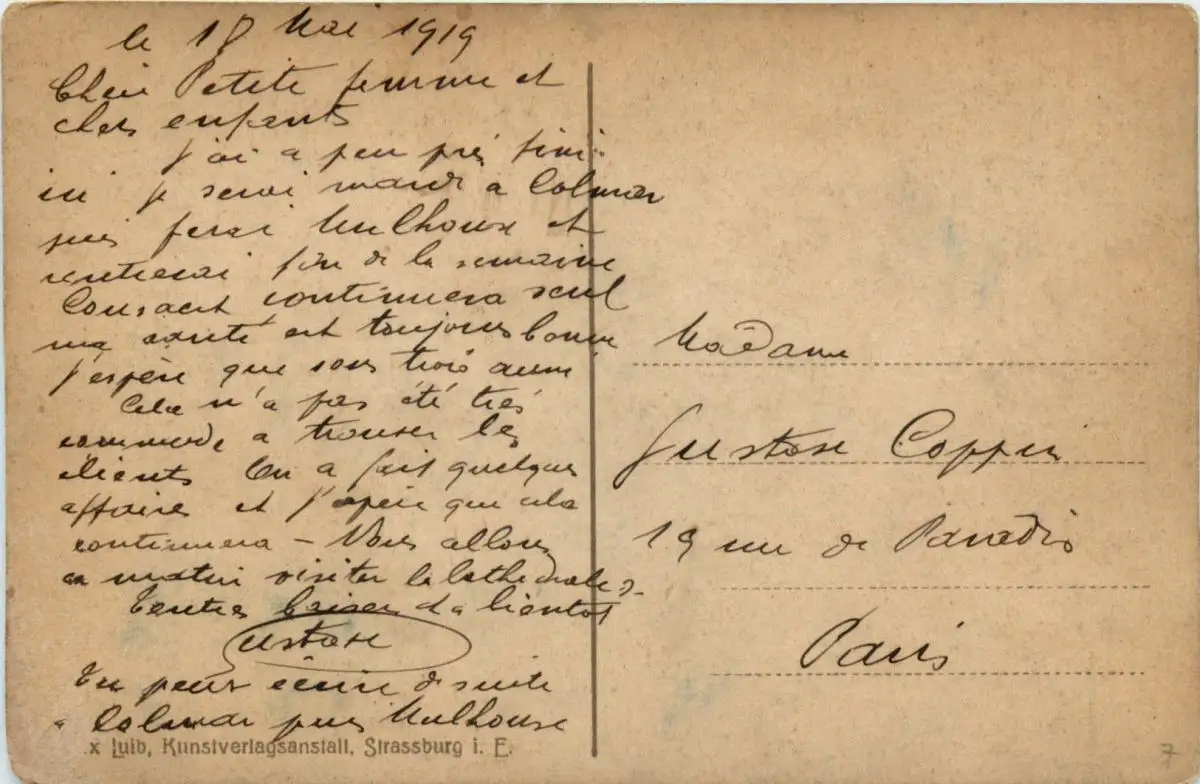 le 18 Mai 1919
Chère Petite femme et
chers enfants
J'ai a peu près fini
ici je serai mardi a Colmar
puis ferai Mulhouse et
rentrerai fin de la semaine
continuera seul
ma santé est toujours bonne
J'espère que vous trois aussi
Cela n'a pas été très
commode a trouver les
clients On a fait quelques
affaires et j'espère que cela
continuera – Nous allons
ce matin visiter la Cathedrale
Tendres baisers et a bientot
Gustave
Tu peux écrire de suite
a Colmar puis Mulhouse
x Luib, Kunstverlagsanstalt, Strassburg i. E.
Madame
Gustave Coppin
19 rue de Paradis
Paris
7